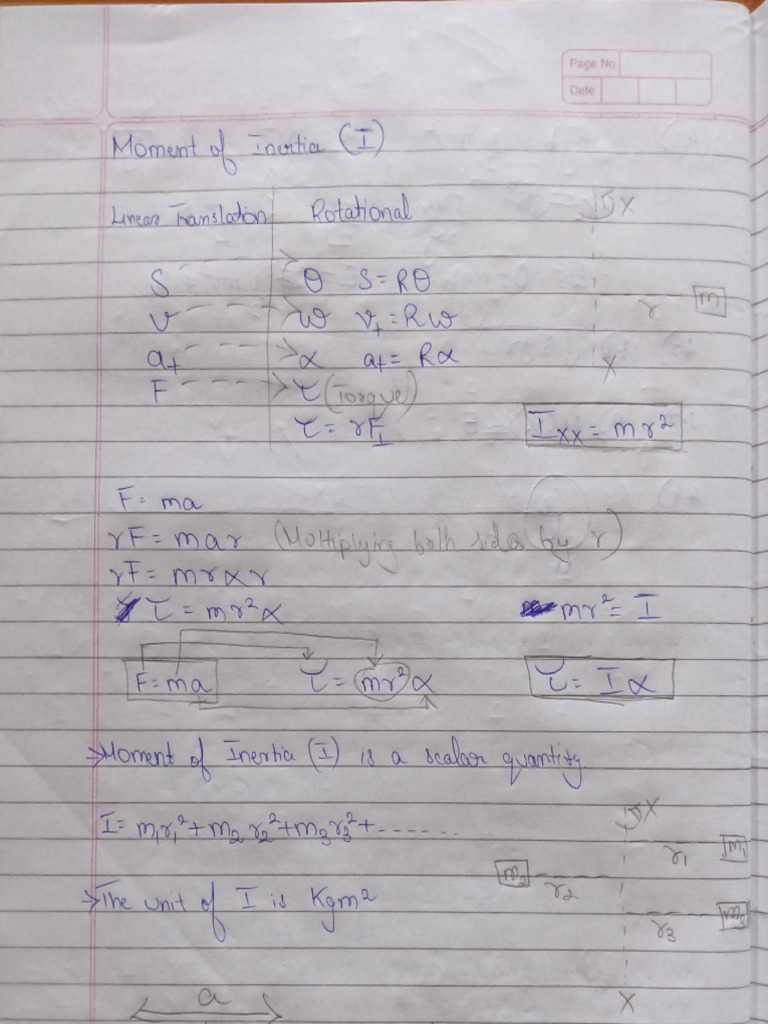 Page No.
Date
Moment of Inertia (I)
Linear Translation Rotational
X
S θ S = Rθ
m
r
v ω vt = Rω
at α at = Rα
X
F τ (Torque)
τ = rF⊥
Ixx = mr²
F = ma
rF = mar (Multiplying both sides by r)
rF = mrαr
τ = mr²α mr² = I
F = ma τ = mr²α τ = Iα
→Moment of Inertia (I) is a scalar quantity.
X
I = m₁r₁² + m₂r₂² + m₃r₃² + - - - - - - .
m₁
r₁
m₂
r₂
→The unit of I is Kgm²
m₃
r₃
X
a